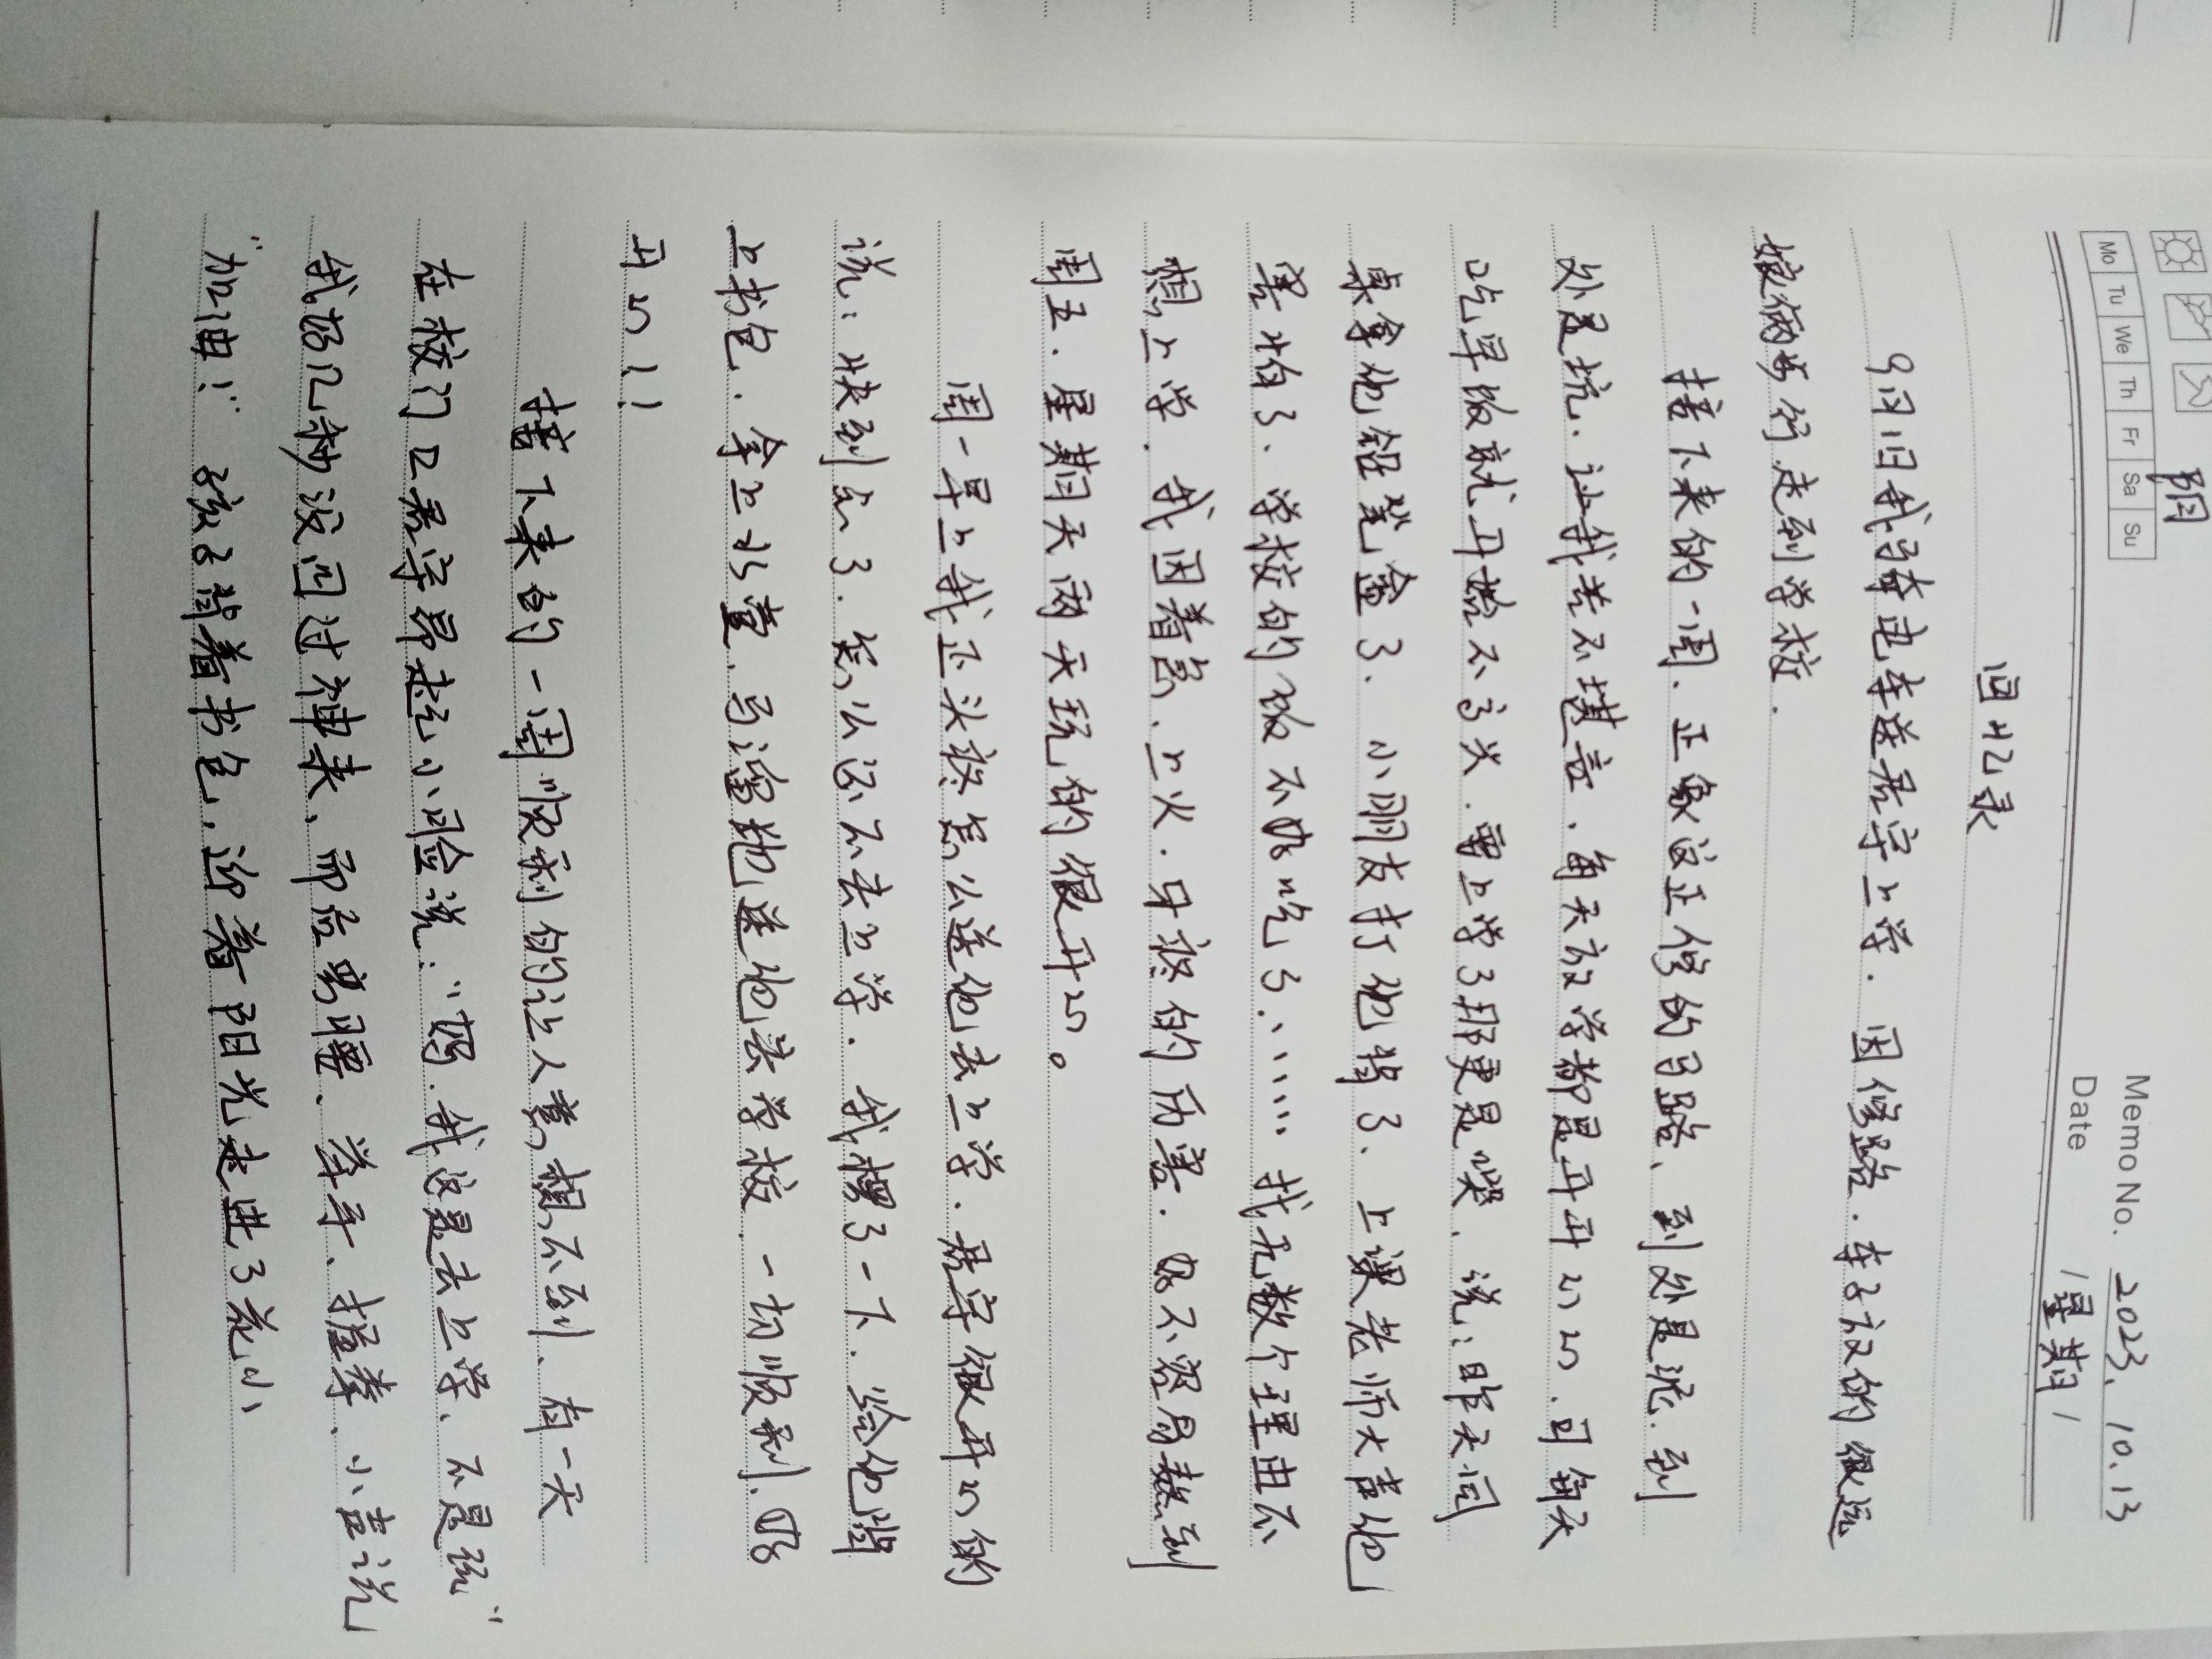 阴
Mo Tu We Th Fr Sa Su
Memo No. 2023.10.13
Date / 星期 /
回忆录
9月1日我骑电车送君宇上学.因修路.车子放的很远
娘俩步行走到学校.
接下来的一周.正象这正修的马路、到处是泥.到
处是坑.让我苦不堪言.每天放学都是开开心心.可每天
吃早饭就开始不高兴.要上学了那更是哭.说:昨天同
桌拿他铅笔盒了、小朋友打他背了、上课老师大声他
害怕了、学校的饭不好吃了、…… 找无数个理由不
想上学.我因着急、上火.牙疼的历害.好不容易熬到
周五.星期天两天玩的很开心。
周一早上我正头疼怎么送他去上学.君宇很开心的
说:快到点了.怎么还不去上学.我愣了一下、给他背
上书包.拿上水壶、马溜地送他去学校.一切顺利.好
开心!!
接下来的一周顺利的让人意想不到、有一天
在校门口君宇昂起小脸说:"妈.我这是去上学、不是玩"
我楞几秒没回过神来、而后弯腰、举手、握拳、小声说
"加油!" 孩子背着书包.迎着阳光走进了花小、